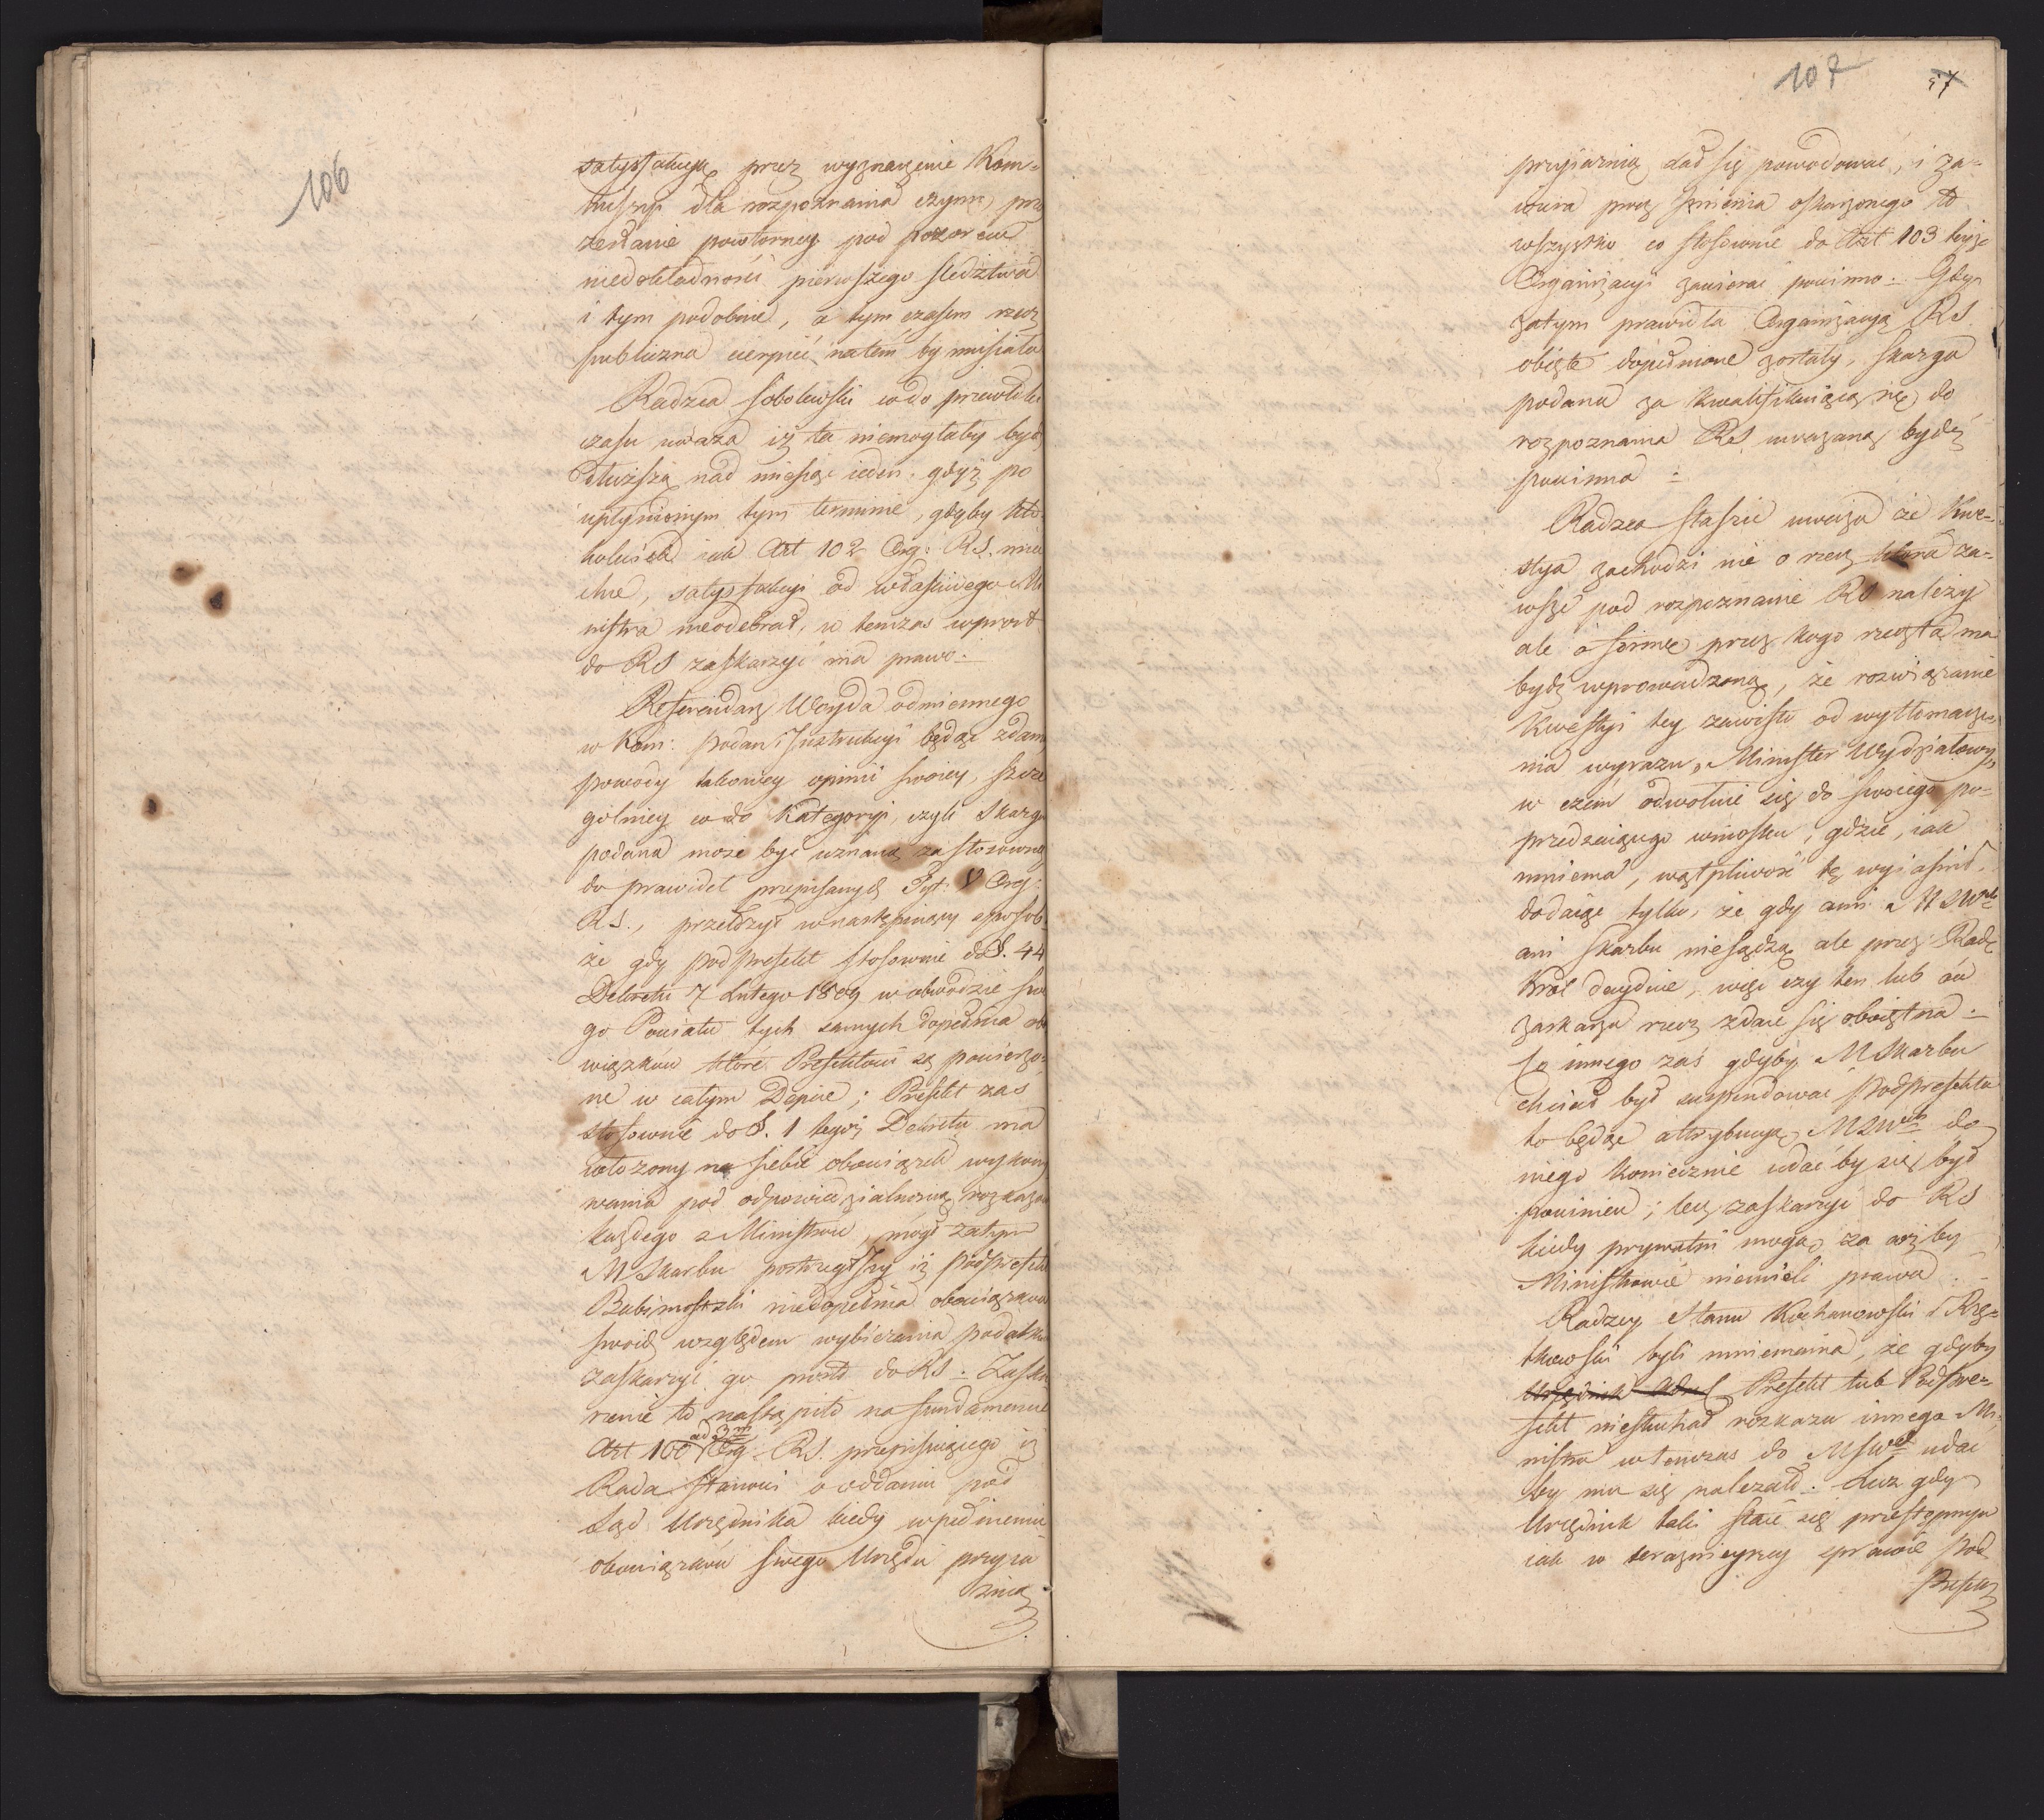 106
satysfakcyą przez wyznaczenie Kom=
missyi dla rozpoznania czynu, prze
zesłanie powtorney pod pozorem
niedokładności pierwszego sledztwa
i tym podobnie, a tym czasem rzecz
publiczna cierpieć na tem by musiała
Radzca Sobolewski codo przewłoki
czasu uważa iż ta niemogłaby bydź
dłuższą nad miesiąc ieden. gdyż po
upłynionym tym terminie, gdyby kto
kolwiek iak Art 102 Org: RS. mieć
chce, satysfakcyi od właściwego Mi
nistra nieodebrał, w tenczas wprost
do RS zaskarzyć ma prawo.
Referendarz Woyda odmiennego
w Kom: podan i Instrukcyi będąc zdania
powody takowey opinii swoiey, szcze
golniey codo kategoryi, czyli skarga
podana może być uznana za stosowną
do prawideł przepisanych Tyt: V Org:
RS., przełożył w następuiący sposob
że gdy podprefekt stosownie do §. 44
Dekretu 7 Lutego 1809 w obwodzie swe
go Powiatu tych samych dopełnia obo
wiązków które Prefektowi są powierzo=
ne w całym Depcie; Prefekt zas
stosownie do §. 1 tegoż Dekretu ma
włożony na siebie obowiązek wykony
wania pod odpowiedzialnością rozkazów
każdego z Ministrów, mógł zatym
M Skarbu postrzegłszy iż podprefekt
Babimostski niedopełnia obowiązków
swoich względem wybierania podatków
zaskarzyć go prosto do RS. Zaskar
zenie to nastąpiło na fundamencie
Art 100 ad 3m Org: RS. przepisuiącego iż
Rada Stanowi o oddaniu pod
Sąd Urzędnika kiedy w pełnieniu
obowiązków swego Urzędu przyia
znią
107
57
przyiaznią dał się powodować, i za=
wiera przez imienia oskarzonego to
wszystko co stosownie do Art 103 teyże
Organizacyi zawierać powinna. Gdy
zatym prawidła Organizacyą RS
obięte dopełnione zostały, skarga
podana za kwalifikuiącą się do
rozpoznania RS, uważaną bydź
powinna
Radzca Staszic uważa że kwe=
stya zachodzi nie o rzecz która za=
wsze pod rozpoznanie RS należy
ale o formę przez kogo rzecz ta ma
bydź wprowadzoną, że rozwiązanie
kwestyi tey zawisło od wytłomacze
nia wyrazu „Minister Wydziałowy„
w czem odwołuie się do swoiego po=
przedzaiącego wniosku, gdzie, iak
mniema, wątpliwość tę wyiaśnił.
dodaiąc tylko, że gdy ani MSWch
ani Skarbu niesądzą ale przez Radę
Król decyduie, więc czy ten lub ów
zaskarża rzecz zdaie się oboiętna.
Co innego zaś gdyby M Skarbu
chciał był suspendować podprefekta
to będąc attrybucyą MSWch do
niego koniecznie udać by się był
powinien; lecz zaskarzyć do RS
kiedy prywatni mogą, za cóż by
Ministrowie niemieli prawa
Radzcy Stanu Kochanowski i Rzę=
tkowski byli mniemania, że gdyby
Prefekt lub Podpre=
fekt niesłuchał rozkazu innego Mi
nistra wtenczas do MSWch udać
by mu się należało. Lecz gdy
Urzędnik taki staie się przestępnym
iak w terazniejszej sprawie Pod
Prefekt